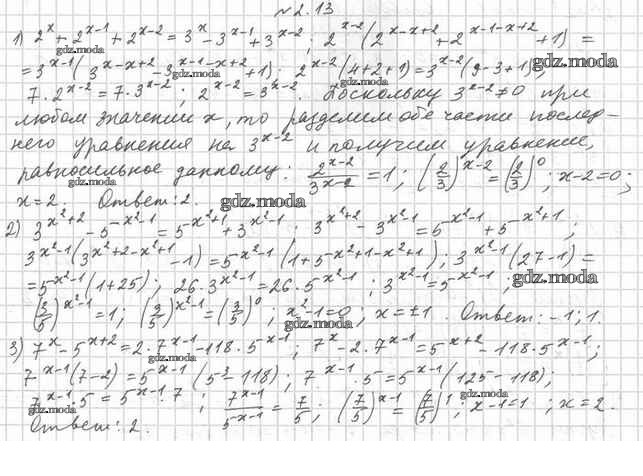 №2.13
1) 2^x + 2^{x-1} + 2^{x-2} = 3^x - 3^{x-1} + 3^{x-2}; 2^{x-2}(2^{x-x+2} + 2^{x-1-x+2} + 1) =
gdz.moda
= 3^{x-1}(3^{x-x+2} - 3^{x-1-x+2} + 1); 2^{x-2}(4+2+1) = 3^{x-2}(9-3+1);
gdz.moda
gdz.moda
7·2^{x-2} = 7·3^{x-2}; 2^{x-2} = 3^{x-2}. Поскольку 3^{x-2} ≠ 0 при
gdz.moda
любом значении x, то разделим обе части послед-
него уравнения на 3^{x-2} и получим уравнение,
равносильное данному: 2^{x-2}/3^{x-2} = 1; (2/3)^{x-2} = (2/3)^0; x-2=0;
gdz.moda
x=2. Ответ: 2.
gdz.moda
2) 3^{x²+2} - 5^{x²-1} = 5^{x²+1} + 3^{x²-1}; 3^{x²+2} - 3^{x²-1} = 5^{x²-1} + 5^{x²+1};
gdz.moda
3^{x²-1}(3^{x²+2-x²+1} - 1) = 5^{x²-1}(1 + 5^{x²+1-x²+1}); 3^{x²-1}(27-1) =
= 5^{x²-1}(1+25); 26·3^{x²-1} = 26·5^{x²-1}; 3^{x²-1} = 5^{x²-1};
gdz.moda
(3/5)^{x²-1} = 1; (3/5)^{x²-1} = (3/5)^0; x²-1=0; x=±1. Ответ: -1; 1.
gdz.moda
3) 7^x - 5^{x+2} = 2·7^{x-1} - 118·5^{x-1}; 7^x - 2·7^{x-1} = 5^{x+2} - 118·5^{x-1};
gdz.moda
7^{x-1}(7-2) = 5^{x-1}(5³-118); 7^{x-1}·5 = 5^{x-1}(125-118);
7^{x-1}·5 = 5^{x-1}·7; 7^{x-1}/5^{x-1} = 7/5; (7/5)^{x-1} = (7/5)^1; x-1=1; x=2.
gdz.moda
gdz.moda
gdz.moda
Ответ: 2.